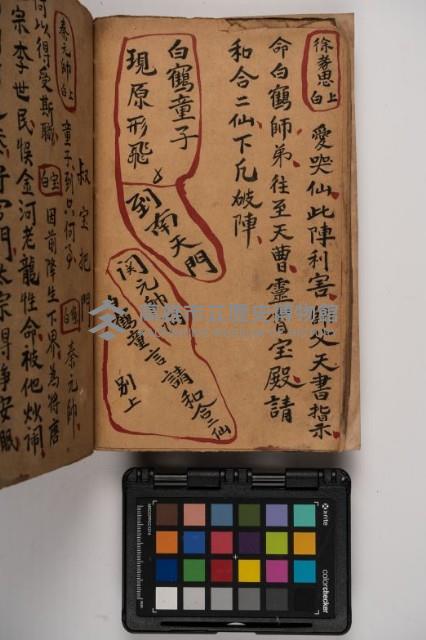 徐孝思上白
愛哭仙此陣利害 父天書指示
命白鶴師弟往至天曹靈霄宝殿請
和合二仙下凡破陣
白鶴童子
現原形飛
到南天門
関元帥
白鶴童言請和合二仙
別上
秦元帥上白
叔宝把門
童子到只何事 白 秦元帥
何以得受斯職 白宝 因前降生下界為将唐
宗李世民悞金河老龍性命被他
宮門太宗得静安眠
高雄市立歷史博物館
x-rite
colorchecker